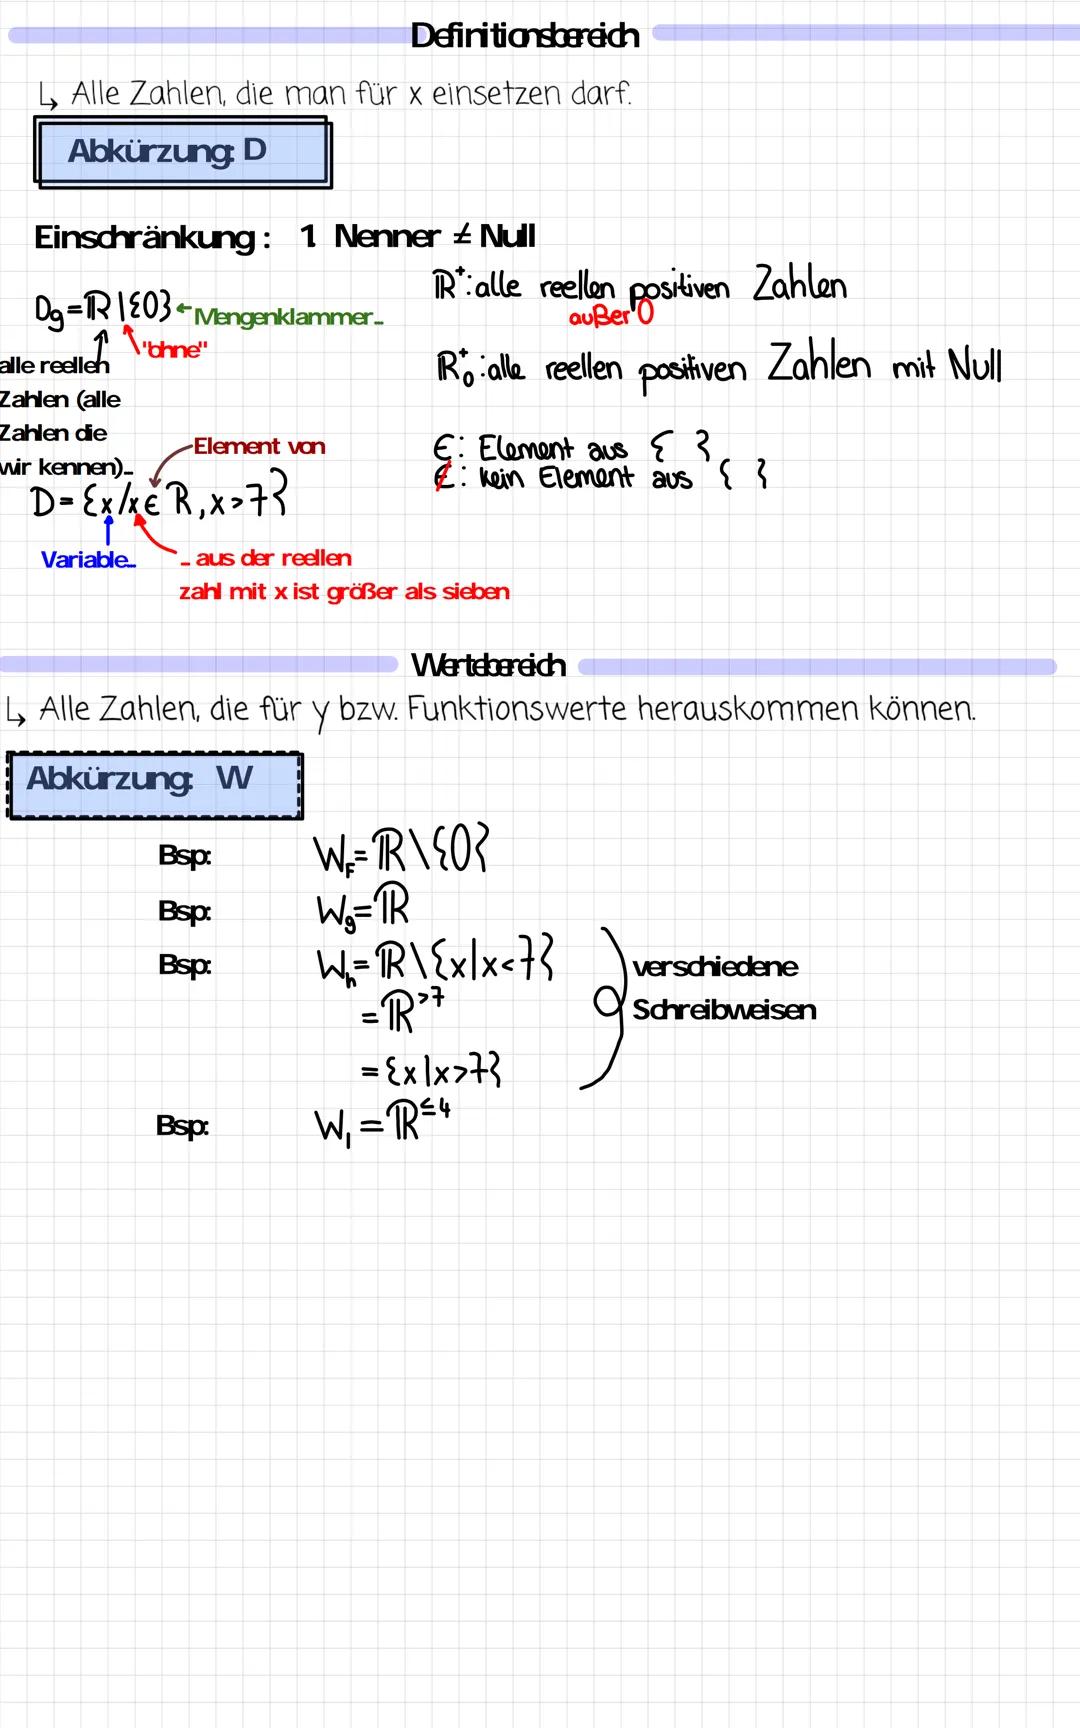 Definitionsbereich
↳ Alle Zahlen, die man für x einsetzen darf.
Abkürzung: D
Einschränkung: 1 Nenner ≠ Null
Dg=ℝ|{0} ← Mengenklammer...
"ohne"
alle reellen
Zahlen (alle
Zahlen die
wir kennen)...
ℝ⁺: alle reellen positiven Zahlen
außer 0
ℝ₀⁺: alle reellen positiven Zahlen mit Null
Element von
D={x/x∈ℝ, x>7}
Variable...
... aus der reellen
zahl mit x ist größer als sieben
∈: Element aus { }
∉: kein Element aus { }
Wertebereich
↳ Alle Zahlen, die für y bzw. Funktionswerte herauskommen können.
Abkürzung: W
Bsp: W_F=ℝ\{0}
Bsp: W_g=ℝ
Bsp: W_h=ℝ\{x|x<7}
=ℝ^>7
={x|x>7}
verschiedene
Schreibweisen
Bsp: W_I=ℝ^≤4